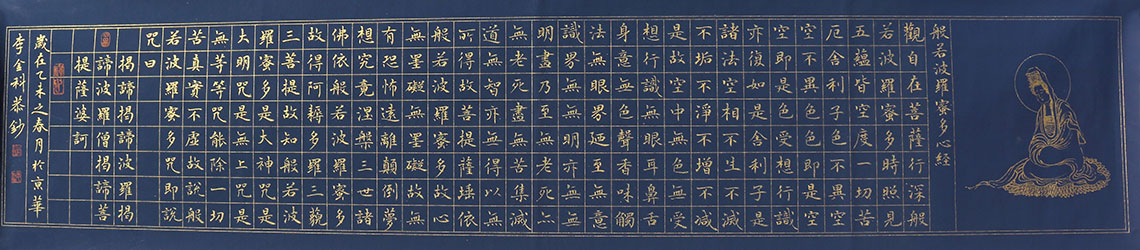 般若波羅蜜多心經
觀自在菩薩行深般
若波羅蜜多時照見
五蘊皆空度一切苦
厄舍利子色不異空
空不異色色即是空
空即是色受想行識
亦復如是舍利子是
諸法空相不生不滅
不垢不淨不增不減
是故空中無色無受
想行識無眼耳鼻舌
身意無色聲香味觸
法無眼界廼至無意
識界無無明亦無無
明盡乃至無老死亦
無老死盡無苦集滅
道無智亦無得以無
所得故菩提薩埵依
般若波羅蜜多故心
無罣礙無罣礙故無
有恐怖遠離顛倒夢
想究竟涅槃三世諸
佛依般若波羅蜜多
故得阿耨多羅三藐
三菩提故知般若波
羅蜜多是大神咒是
大明咒是無上咒是
無等等咒能除一切
苦真實不虛故說般
若波羅蜜多咒即說
咒曰
揭諦揭諦波羅揭
諦波羅僧揭諦菩
提薩婆訶
歲在乙未之春月於京華
李金科恭鈔